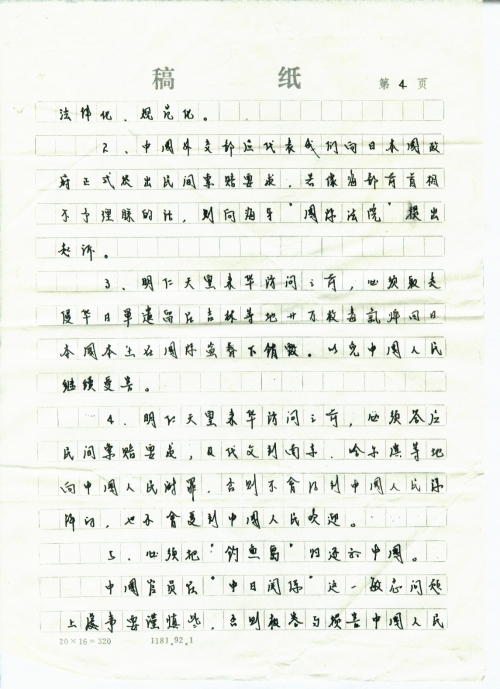 稿 纸
第 4 页
法律化、规范化。
2、中国外交部应代表我们向日本国政
府正式发出民间索赔要求,若像海部前首相
不予理睬的话,则向海牙“国际法院”提出
起诉。
3、明仁天皇来华访问之前,必须取走
侵华日军遗留在吉林等地廿万枚毒氣弹回日
本国本土在国际监督下销毁。以免中国人民
继续受害。
4、明仁天皇来华访问之前,必须答应
民间索赔要求,及代交到南京、哈尔滨等地
向中国人民謝罪,否则不會得到中国人民谅
解的,也不會受到中国人民欢迎。
5、必须把“钓鱼岛”归还於中国。
中国官员在“中日关係”这一敏感问题
上處事要谨慎些,否则被卷与损害中国人民
20×16=320 1181.92.1